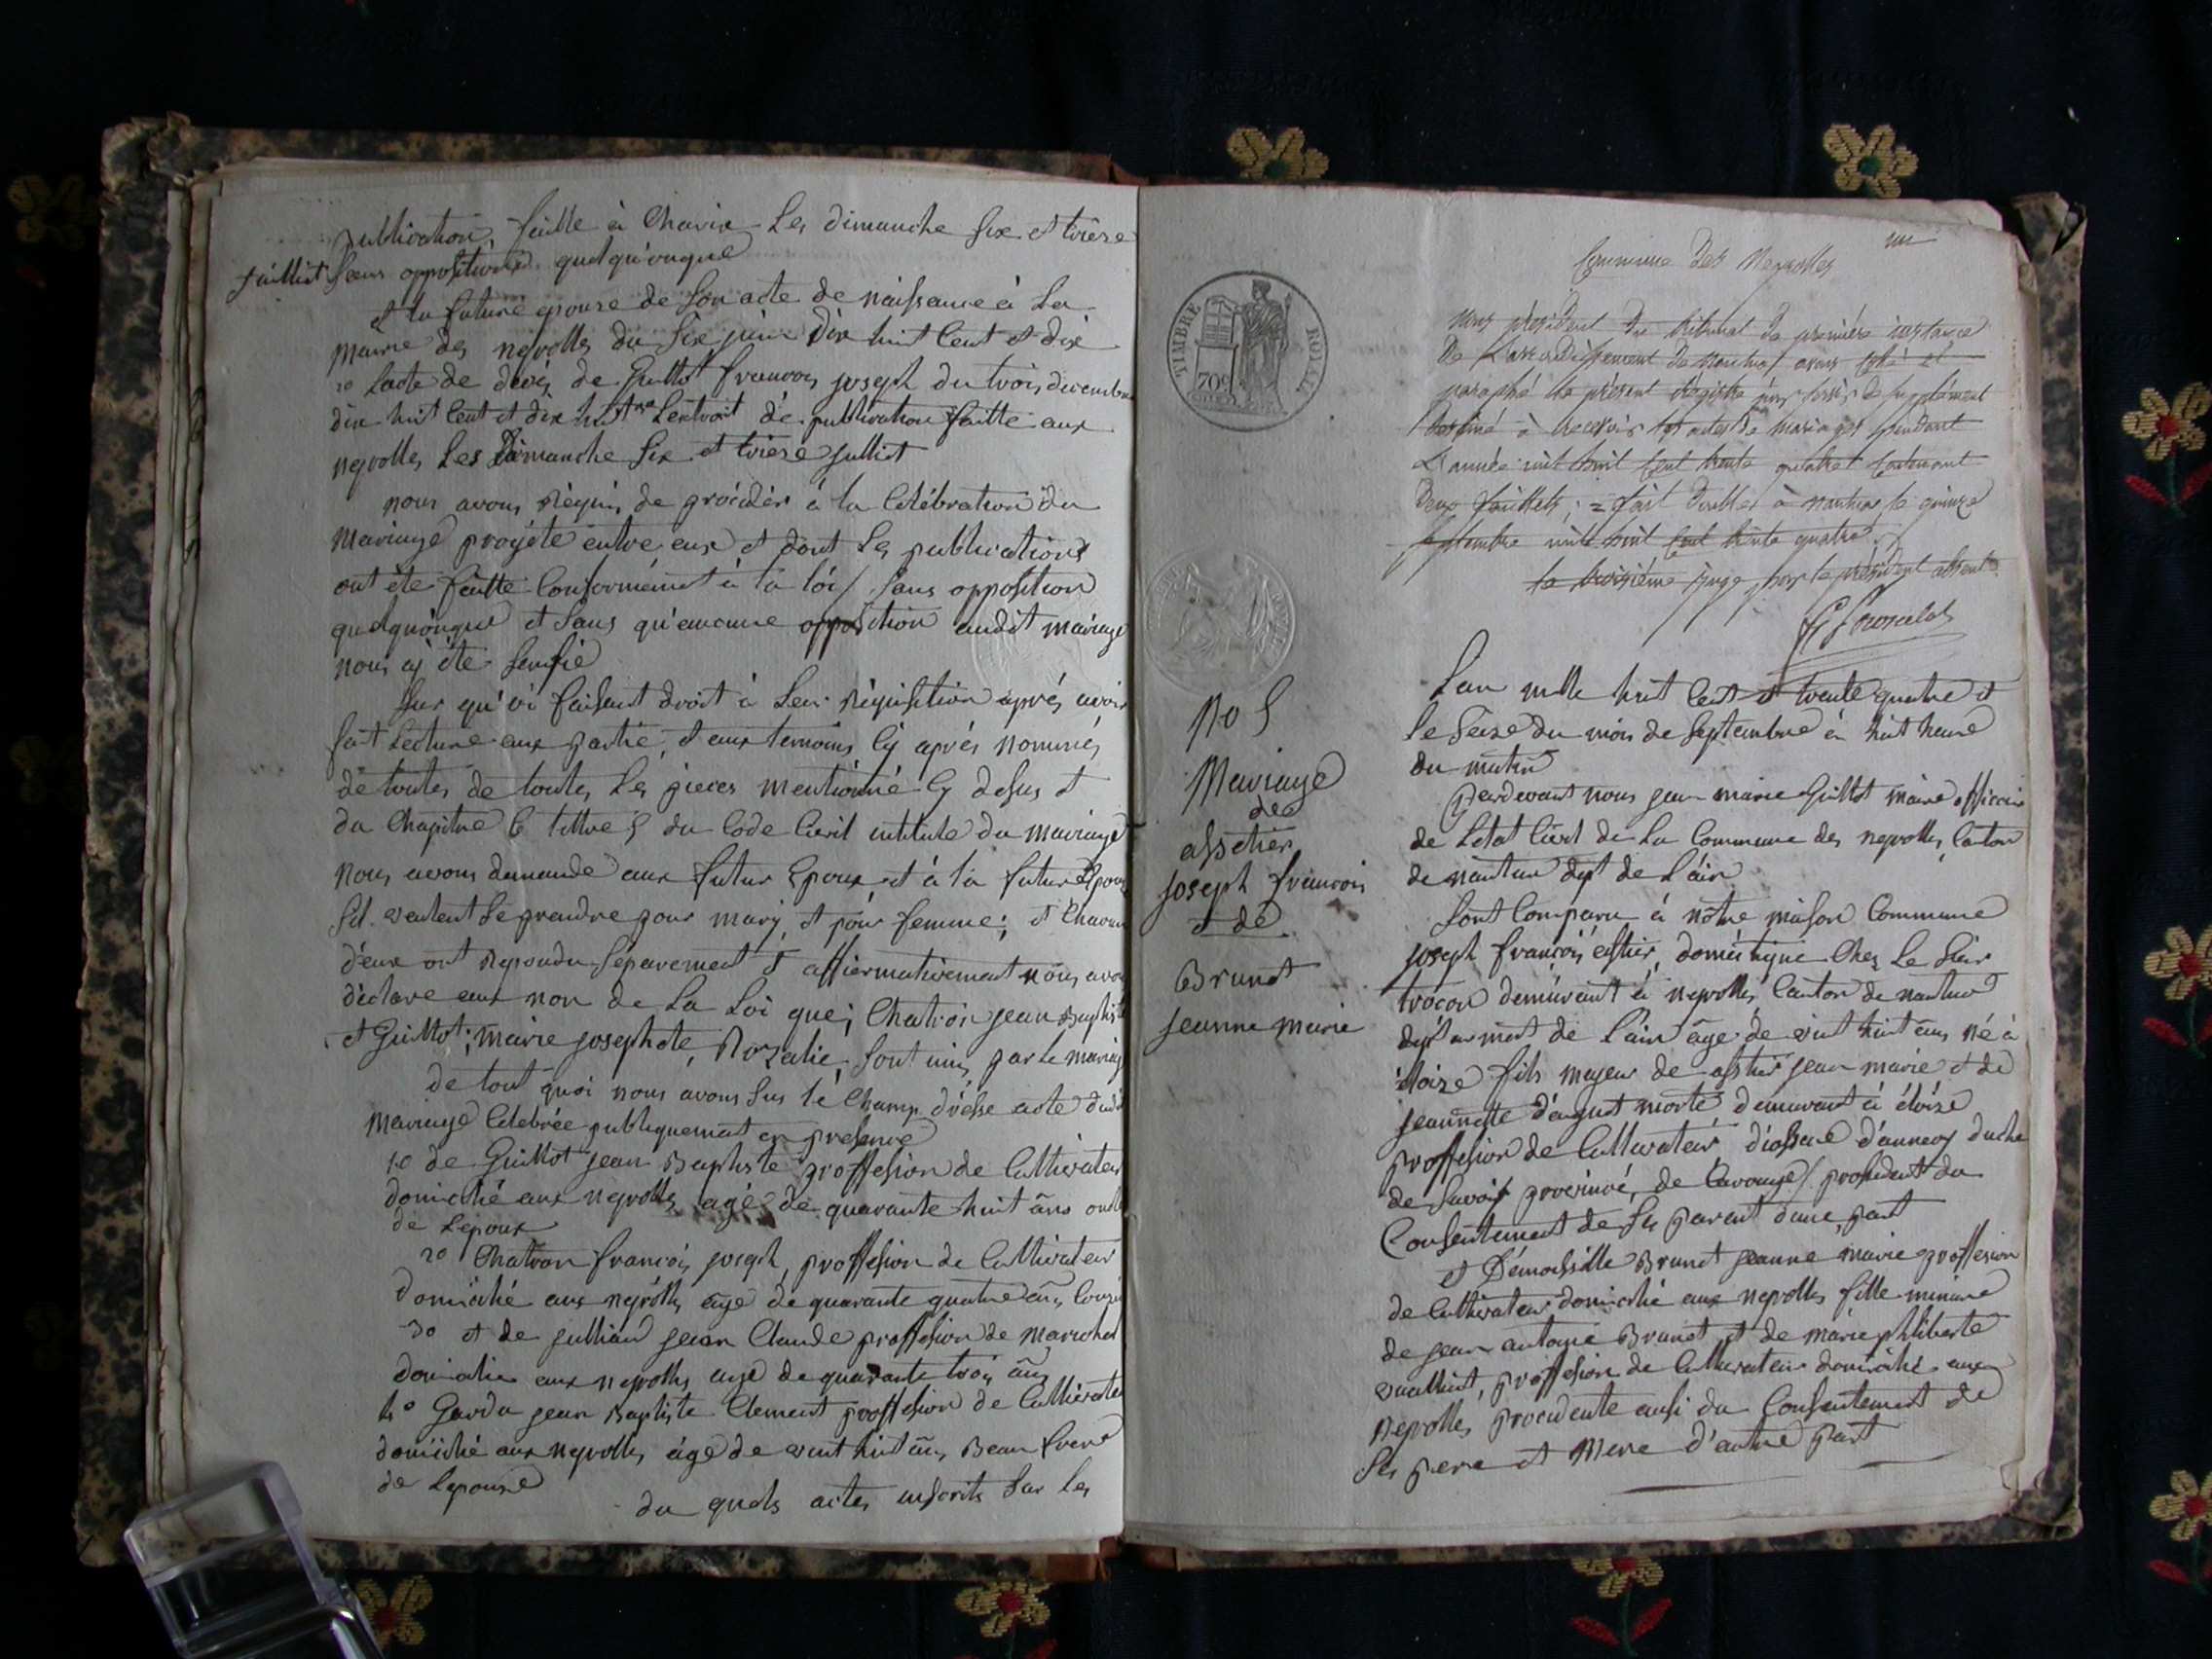 publication faitte à Charix Les dimanche six et treise
juilliet sans oppositions quelqu'onque
et la future epouse de son acte de naissance à La
Mairie des neyrolles du six juin dix huit Cent et dix
20 Lacte de decès de Guillot francois joseph du trois decembre
dix huit Cent et dix huit Lextrait de publication faitte aux
neyrolles Les Dimanche six et treise julliet
nous avons Requis de procèder à la Célébration du
Mariage projété entre eux et dont Les publications
ont éte faitte Conformément à la loi sans opposition
quelquonque et sans qu'aucune opposition audit mariage
nous ay éte
Sur qu'oi faisant droit à Leur Réquisition aprés avoir
fait Lecture aux partie, et aux temoins Cy aprés nommés
de toutes de toutes Les pieces mentionné Cy desus et
du Chapitre 6 tittre 5 du Code Civil intitule du mariage
Nous avons demande aux futur Epoux et à la future Epouse
Sil veulent se prendre pour mary, et pour femme; et Chacun
d'eux ont Repondu séparement et affiermativement nous avons
déclare aux non de La Loi que; Chatron jean Baptiste
et Guillot; marie josephete, Rozalie, sont unis par le mariage
de tout quoi nous avons sus lé Champ drésse acte dudit
Mariage Celebrée publiquement en presence
10 de Guillot jean Baptiste proffesion de Cultivateur
domicilié aux neyrolles agé de quarante huit ans oncle
de Lepoux
20 Chatron francois joseph, proffesion de Cultivateur
domicilié aux neyrolles age de quarante quatre ans Cousin
30 et de jullian jean Claude proffesion de Marichal
domicilie aux neyrolles age de quarante trois ans
4° Garda jean Baptiste Clement proffesion de Cultivateur
domicilié aux neyrolles agé de vent huit ans Beau frere
de Lepouse
du quels actes inscrits sur les
TIMBRE ROYAL
70c
No 5
Mariage
de
assetier
joseph francois
et de
Brunet
jeanne marie
Commune des Neyrolles
Nous président du tribunal de première instance
De L'arrondissement de Nantua avons coté et
paraphé le présent Régistre pour servir de supplément
Destiné à Recevoir les actes de Mariages pendant
L'année mil huit cent trente quatre contenant
Deux feuillets; = fait double à nantua le quinze
septembre mil huit cent trente quatre.
le troisième juge, pour le président absent.
Lan mille huit Cent et trente quatre et
Le Seize du mois de Septembre à huit heure
du matin
Pardevant nous jean marie Guillot maire officier
de Letat Civil de La Commune des neyrolles, Canton
de nantua dept de L'ain
Sont Comparu à nôtre maison Commune
joseph francois astier, doméstique Chez Le Sieur
trocon demeurant à neyrolles Canton de nantua
departement de L'ain age de vint huit ans né à
éloize fils mageur de astier jean marie et de
jeannette morte demeurant à éloize
proffesion de Cultivateur d'annecy duché
de Savoir provinvé, de Carouge procedent du
Consentement de ses parent dune part
et Démoiselle Brunet jeanne marie proffesion
de Cultivateur domicilié aux neyrolles fille mineure
de jean antoine Brunet et de marie philiberte
vuallient, proffesion de Cultivateur domicilié aux
neyrolles procedente ausi du Consentement de
ses pere et Mere d'autre part